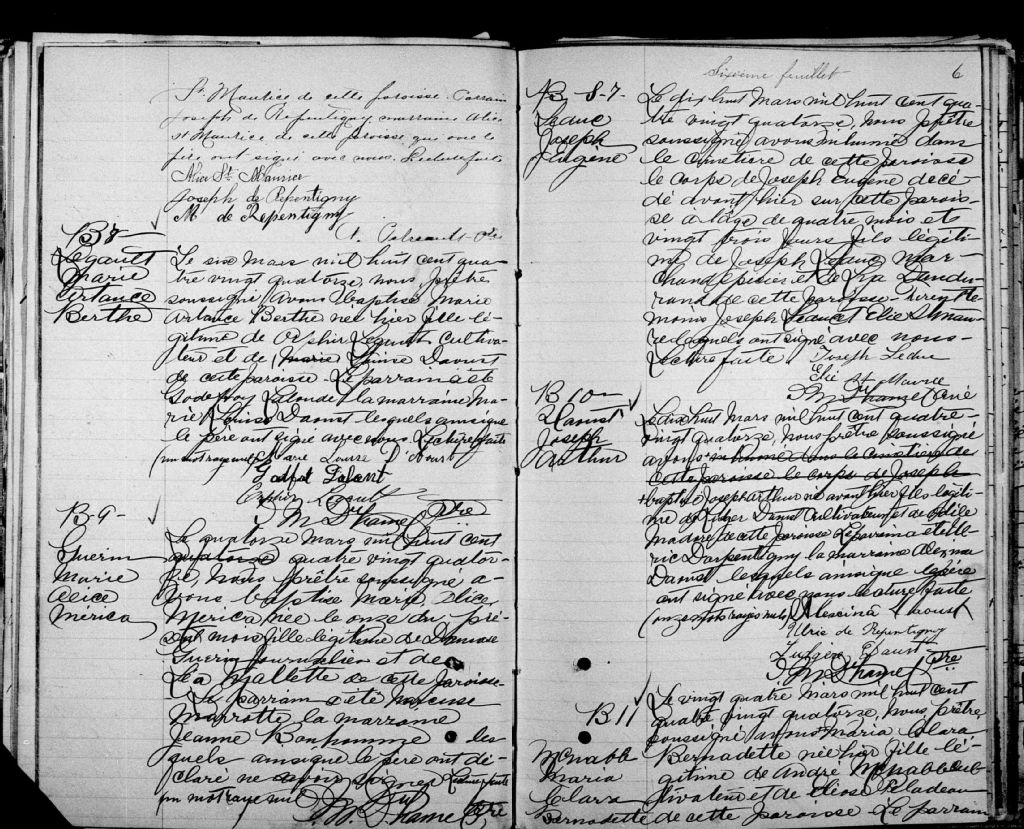 St Maurice de cette paroisse. Parrain
Joseph de Repentigny, marraine Alice
St Maurice de cette paroisse qui avec le
père ont signé avec nous. Lecture faite
Alice St Maurice
Joseph de Repentigny
M. de Repentigny
Ptre
B 8
Legault
Marie
Artance
Berthe
Le six Mars mil huit cent qua-
tre vingt quatorze, nous prêtre
soussigné avons baptisé Marie
Artance Berthe née hier fille lé-
gitime de Orphir Legault cultiva-
teur et de Marie Louise Daoust
de cette paroisse. Le parrain a été
Godefroy Lalonde la marraine Ma-
rie Louise Daoust lesquels ainsi que
le père ont signé avec nous. Lecture faite
(un mot rayé nul) Marie Louise D'Aoust
Orphir Legault
Ptre
B-9-
Guerin
Marie
Alice
Mérica
Le quatorze Mars mil huit cent
quatorze quatre vingt quator-
ze, nous prêtre soussigné a-
vons baptisé Marie Alice
Merica née le onze du pré-
sent mois fille légitime de
Guerin journalier et de
Léa Mallette de cette paroisse.
Le parrain a été Narcisse
Marrotte la marraine
Jeanne Bonhomme les-
quels ainsi que le père ont dé-
claré ne savoir signer Lecture faite
un mot rayé nul
Ptre
Sixième feuillet
6
B-8-7-
Leduc
Joseph
Eugène
Le dix huit Mars mil huit cent qua-
tre vingt quatorze, nous prêtre
soussigné avons inhumé dans
le cimetière de cette paroisse
le corps de Joseph Eugène décé-
dé avant hier sur cette parois-
se à l'âge de quatre mois et
vingt trois jours fils légiti-
me de Joseph Leduc Mar-
chand épicier et de Léa Dandu-
rand de cette paroisse. Furent té-
moins Joseph Leduc et Elie St Mau-
rice lesquels ont signé avec nous-
Lecture faite Joseph Leduc
Elie St Maurice
Curé
B 10
Daoust
Joseph
Arthur
Le dix huit Mars mil huit cent quatre-
vingt quatorze, nous prêtre soussigné
avons inhumé dans le cimetière de
cette paroisse le corps de Joseph
+baptisé Joseph Arthur né avant hier fils légiti-
me de Daoust cultivateur et de Odile
Madore de cette paroisse Le parrain a été
Darpentigny la marraine
Daoust lesquels ainsi que le père
ont signé avec nous Lecture faite
(onze mots rayés nuls) Alexina Daoust
Ulric de Repentigny
Daoust
Ptre
B 11
McNabb
Maria
Clara
Bernadette
Le vingt quatre Mars mil huit cent
quatre vingt quatorze, nous prêtre
soussigné avons Maria Clara
Bernadette née hier fille lé-
gitime de André McNabb cul-
tivateur et de Elise Piladeau
de cette paroisse Le parrain